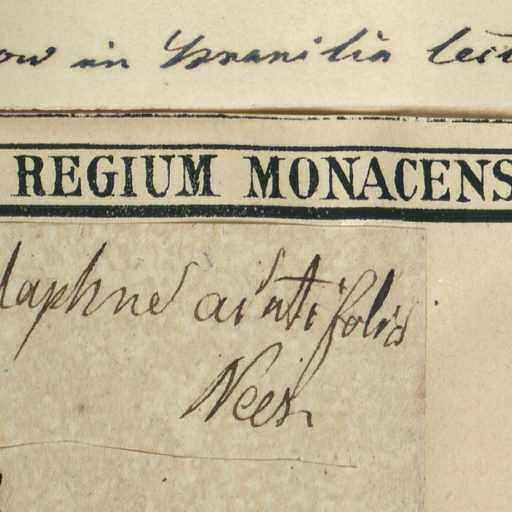 in Brasilia
REGIUM MONACENS
daphne acutifolia
Nees